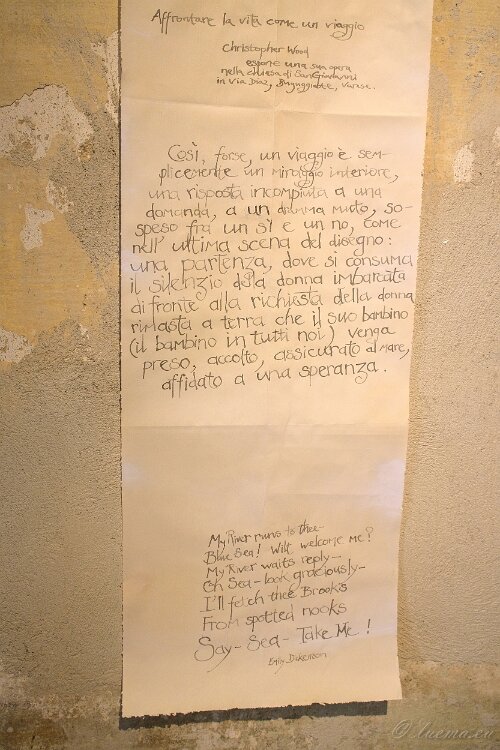 Affrontare la vita come un viaggio
Christopher Wood
espone una sua opera
nella chiesa di San Giovanni
in Via Diaz, Buguggiate, Varese.
Così, forse, un viaggio è sem-
plicemente un miraggio interiore,
una risposta incompiuta a una
domanda, a un dramma muto, so-
speso fra un sì e un no, come
nell'ultima scena del disegno:
una partenza, dove si consuma
il silenzio della donna imbarcata
di fronte alla richiesta della donna
rimasta a terra che il suo bambino
(il bambino in tutti noi) venga
preso, accolto, assicurato al mare,
affidato a una speranza.
My River runs to thee-
Blue Sea! Wilt welcome me?
My River waits reply-
Oh Sea - look graciously-
I'll fetch thee Brooks
From spotted nooks
Say - Sea - Take Me!
Emily Dickinson